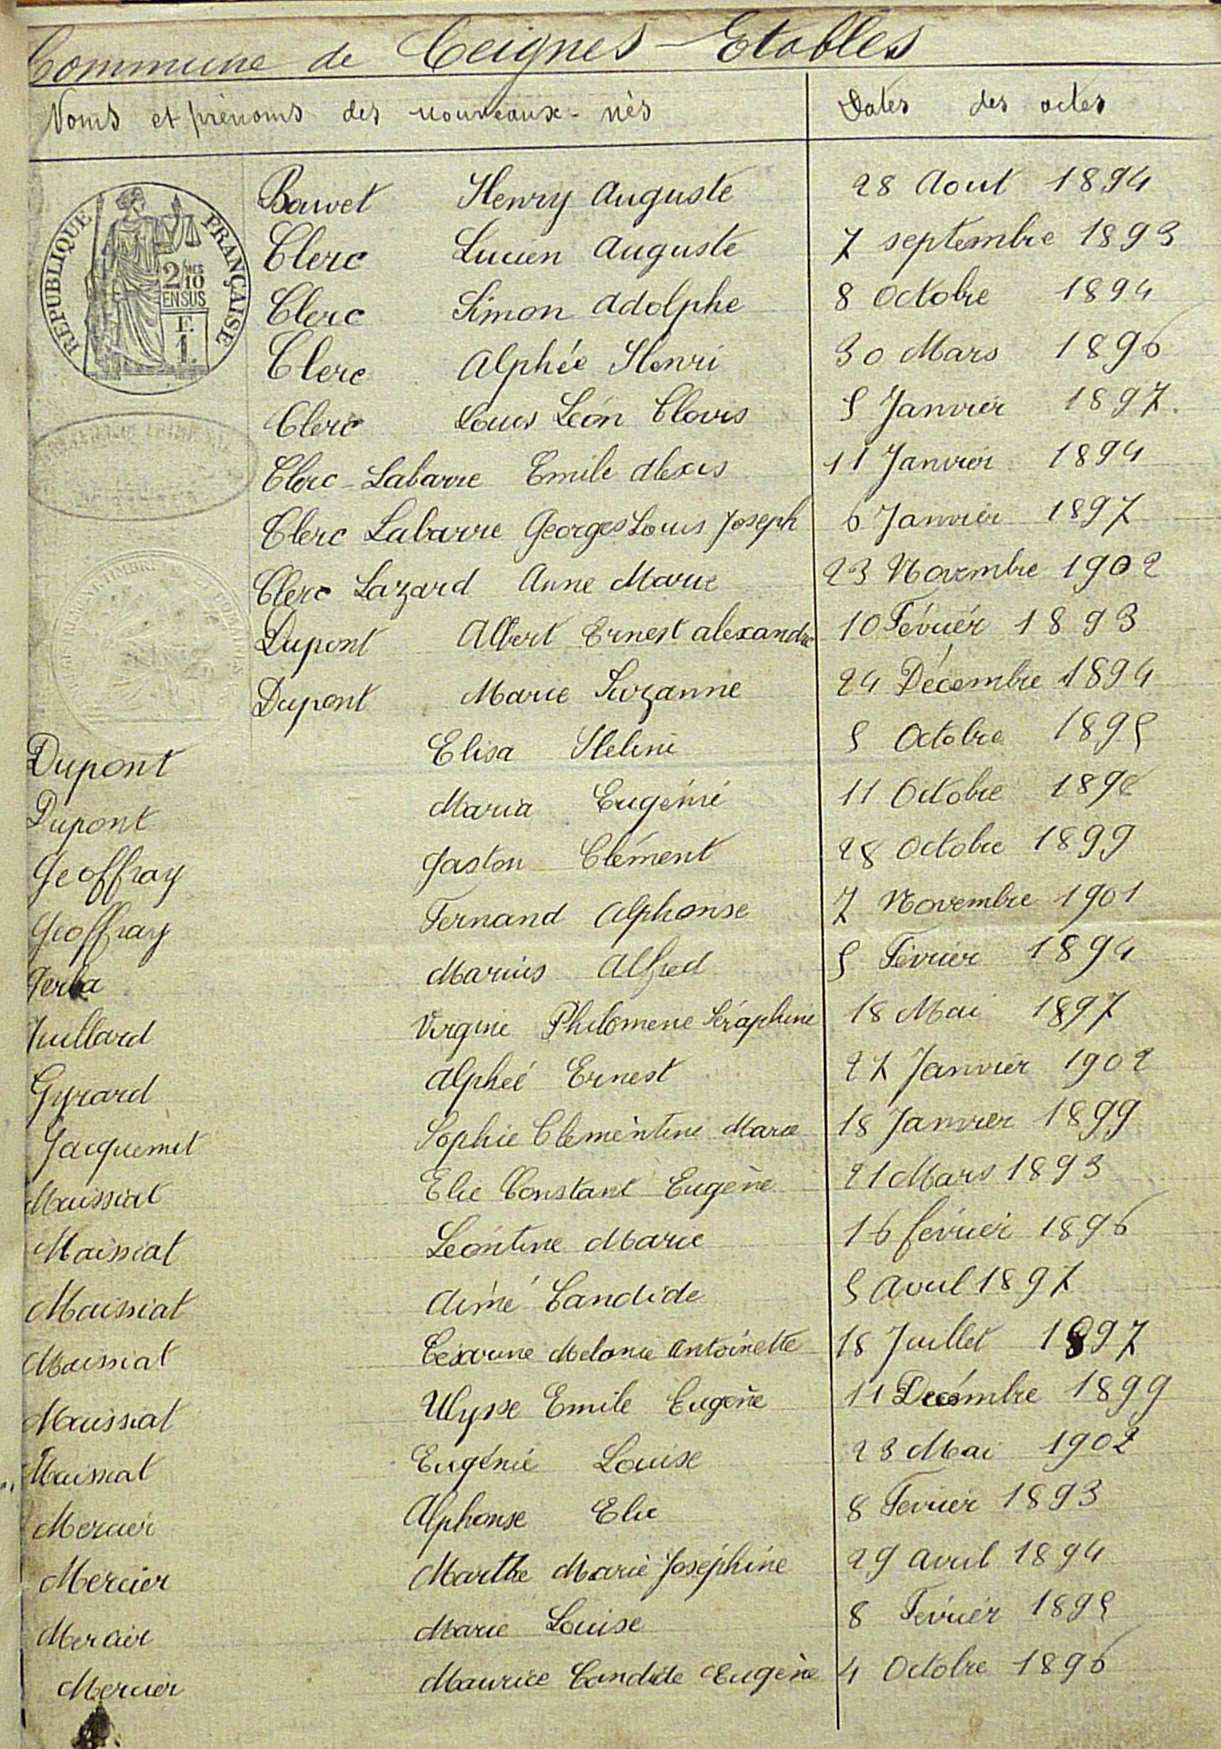 Commune de Ceignes Etables
Noms et prénoms des nouveaux-nés Dates des actes
RÉPUBLIQUE FRANÇAISE
2/10 MES
EN SUS
F.
1.
Henry Auguste 28 Aout 1894
Clerc Lucien Auguste 7 septembre 1893
Clerc Simon Adolphe 8 Octobre 1894
Clerc Alphée Henri 30 Mars 1896
Clerc Louis Léon Clovis 5 Janvier 1897.
Clerc-Labarre Emile Alexis 11 Janvier 1894
Clerc Labarre Georges Louis Joseph 6 Janvier 1897
Clerc Lazard Anne Marie 23 Novembre 1902
Dupont Albert Ernest alexandre 10 Février 1893
Dupont Marie Suzanne 24 Décembre 1894
Dupont Elisa Helène 5 Octobre 1895
Dupont Maria Eugénie 11 Octobre
Geoffray Gaston Clément 28 Octobre 1899
Geoffray Fernand Alphonse 7 Novembre 1901
Marius Alfred 5 Février 1894
Juillard Virginie Philomene Séraphine 18 Mai 1897
Gyrard Alphée Ernest 27 Janvier 1902
Jacquemet Sophie Clementine Marie 18 Janvier 1899
Maissiat Elie Constant Eugène 21 Mars 1893
Maissiat Léontine Marie 16 février 1896
Maissiat Aimé Candide 5 Avril 1897
Maissiat Melanie Antoinette 18 Juillet 1897
Maissiat Ulysse Emile Eugène 11 Decémbre 1899
Maissiat Eugénie Louise 23 Mai 1902
Mercier Alphonse Elie 8 Fevrier 1893
Mercier Marthe Marie Joséphine 29 Avril 1894
Mercier Marie Louise 8 Février 1895
Mercier Maurice Candide Eugène 4 Octobre 1896